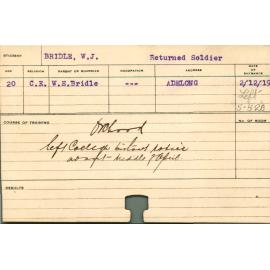 STUDENT BRIDLE, W.J. Returned Soldier
AGE RELIGION PARENT OR GUARDIAN OCCUPATION ADDRESS DATE OF ENTRANCE
20 C.E. W.S.Bridle --- ADELONG 2/12/19
Left
5-5-20
COURSE OF TRAINING No. OF ROOM
Left College without notice
about middle of April.
RESULTS